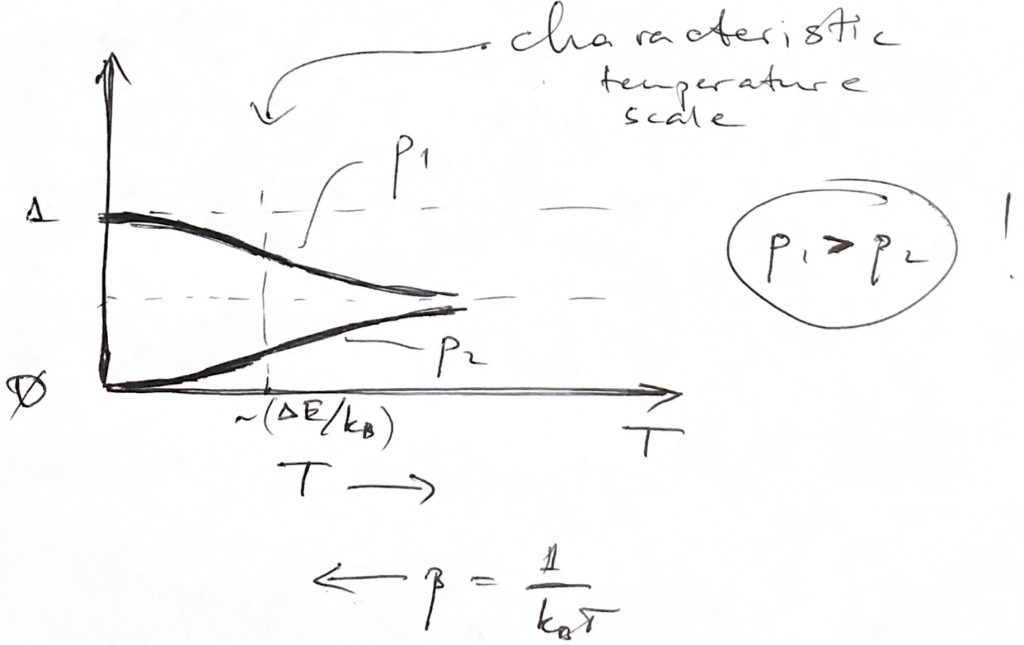 characteristic
temperature
scale
p1
1
p1 > p2 !
p2
0
~(ΔE/kB)
T
T →
← β = 1/kBT